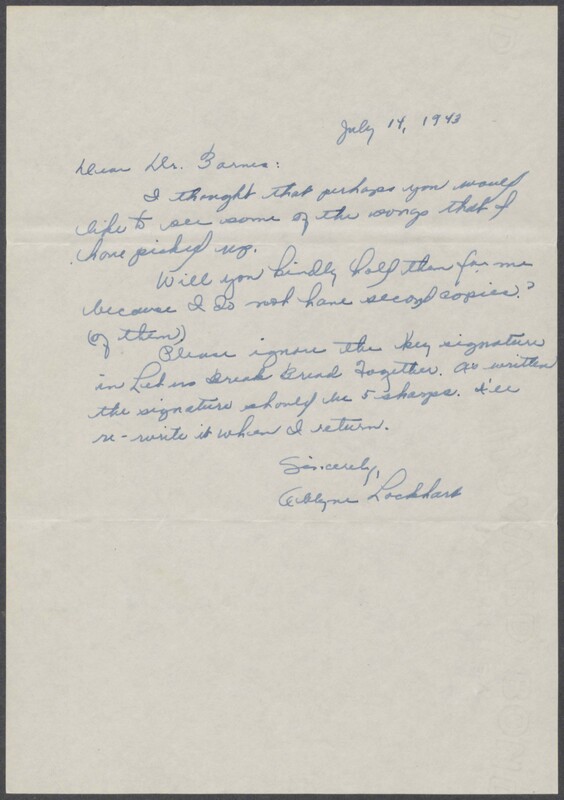 July 14, 1943
Dear Dr. Barnes:
I thought that perhaps you would
like to see some of the songs that I
have picked up.
Will you kindly hold them for me
because I do not have second copies?
(of them)
Please ignore the key signature
in Let us Break Bread Together. As written
the signature should be 5 sharps. I'll
re-write it when I return.
Sincerely,
Lockhart